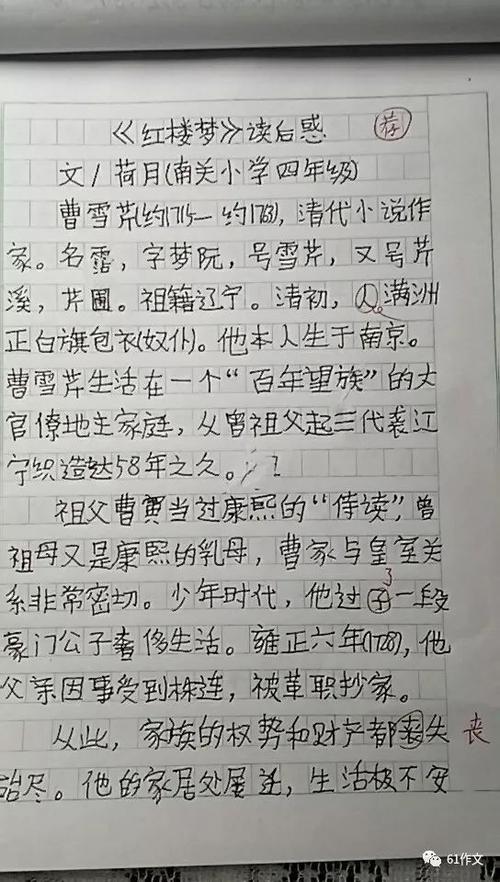 《红楼梦》读后感
荐
文/荷月(南关小学四年级)
曹雪芹(约1715—约1763)，清代小说作
家。名霑，字梦阮，号雪芹，又号芹
溪，芹圃。祖籍辽宁。清初，入满洲
正白旗包衣(奴仆)。他本人生于南京。
曹雪芹生活在一个“百年望族”的大
官僚地主家庭，从曾祖父起三代袭江
宁织造达58年之久。
祖父曹寅当过康熙的“侍读”，曾
祖母又是康熙的乳母，曹家与皇室关
系非常密切。少年时代，他过了一段
豪门公子奢侈生活。雍正六年(1728)，他
父亲因事受到株连，被革职抄家。
从此，家族的权势和财产都丧失 丧
殆尽。他的家居处屡迁，生活极不安
61作文